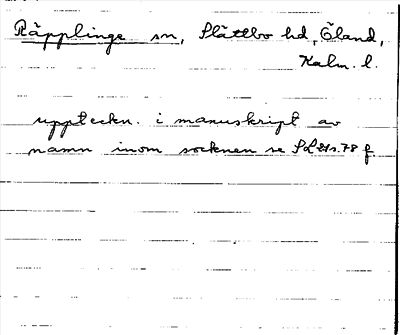 Räpplinge sn, Slättbo hd, Öland,
Kalm. l.
uppteckn. i manuskript av
namn inom socknen se SL 21 s. 78 f